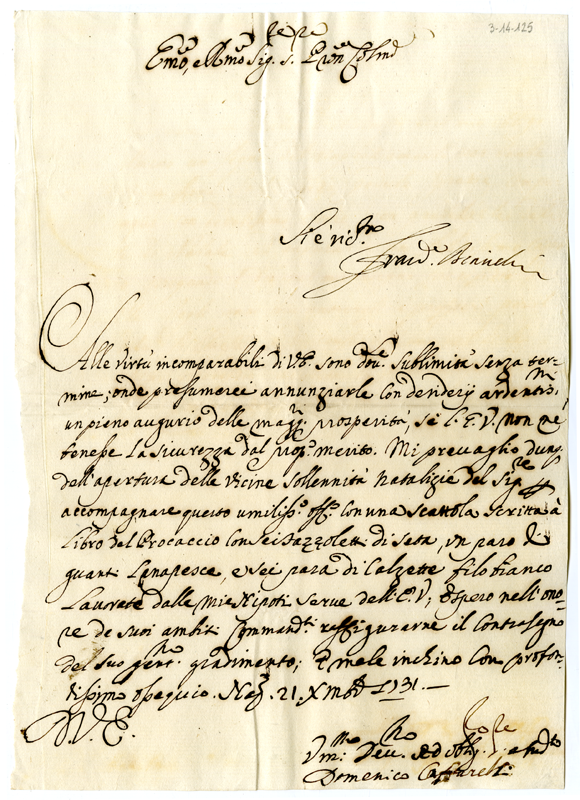 3-14-125
Emo, e Rmo Sig.re S. Pron Colmo
Si è rictro
Frand.o Bianchi
Alle virtù incomparabili di V.E. sono dou.e sublimità senza ter=
mine; onde presumerei annunziarle con deriderij ardentmi,
un pieno augurio delle magg.ri prosperità, se l'E.V. non ne
tenesse la sicurezza dal prop.o merito. Mi prevaglio dunq.
dell'apertura delle vicine sollennità natalizie del Sig.re
accompagnare questo umiliss.o off.o con una scattola scritta à
libro del Procaccio con sei fazzoletti di seta, un paro di
guanti Lanapesce, e sei para di Calzette filo bianco
Laurate dalle mie Nipoti serve dell'E.V; e spero nell'ono=
re de suoi ambiti Command.ti raffigurarne il Contrasegno
del suo gent.mo gradimento; E mele inchino con profon=
dissimo ossequio. Nap. 21. Xmbre 1731.—
D.V.E.
Vmilmo Deu.mo ed obbl.
Domenico Caffarelli